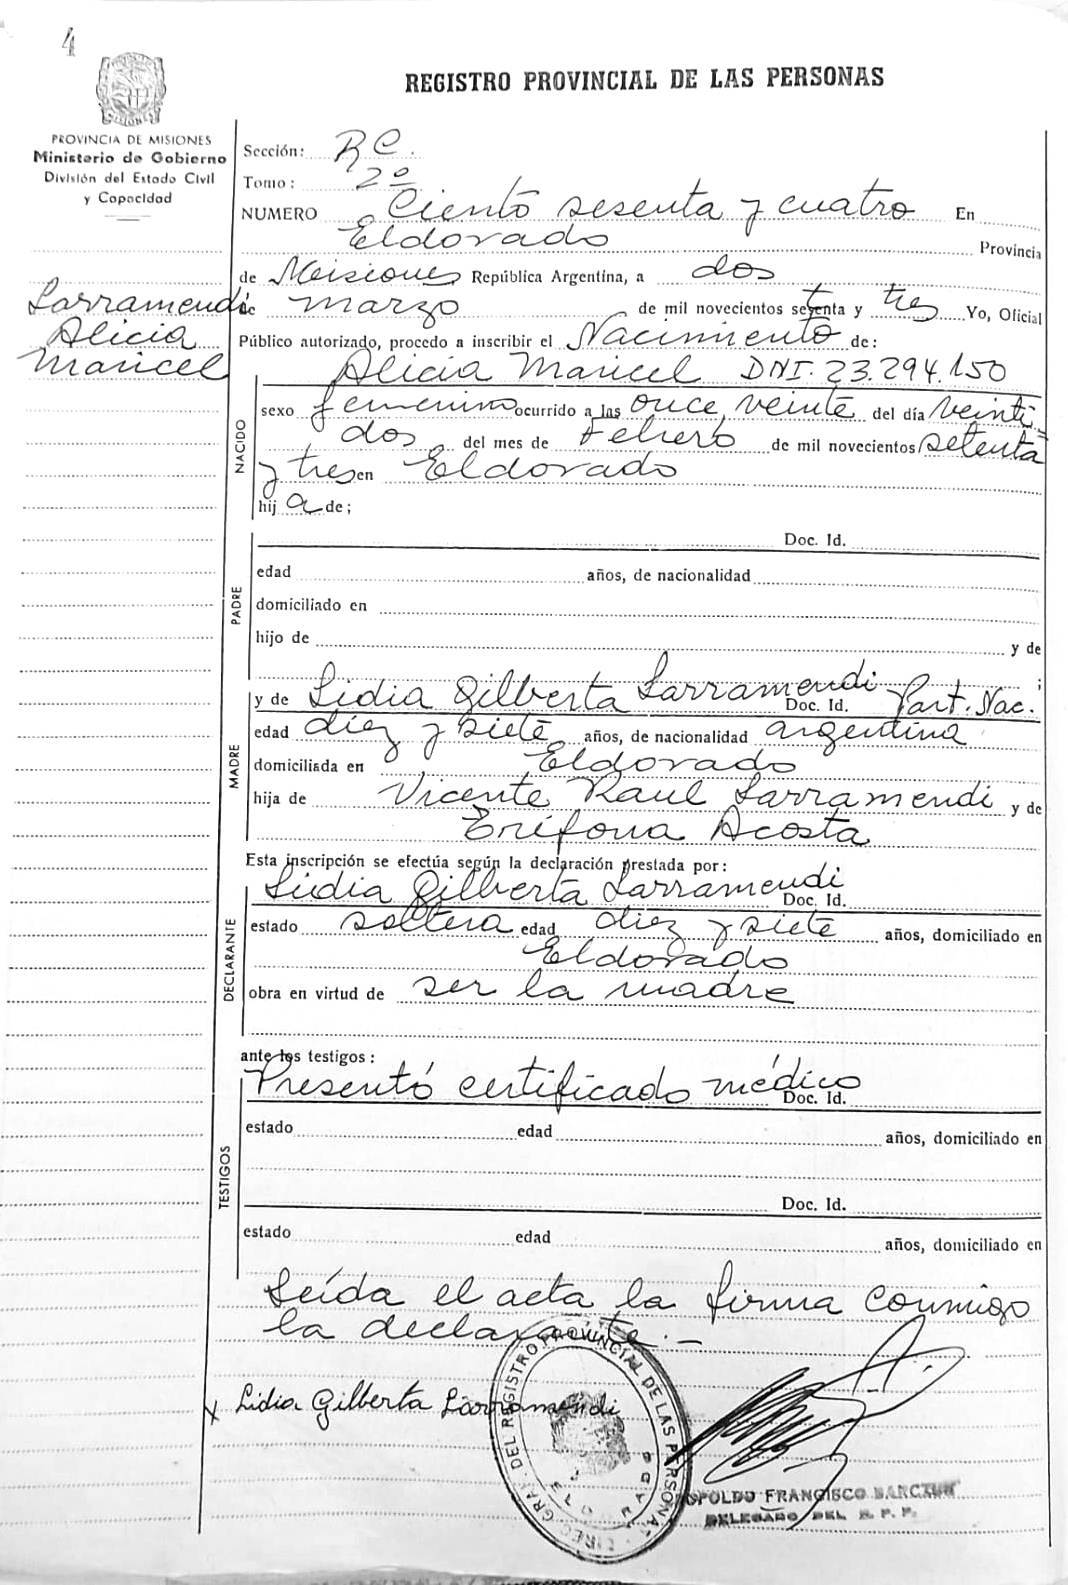 4
REGISTRO PROVINCIAL DE LAS PERSONAS
PROVINCIA DE MISIONES
Ministerio de Gobierno
División del Estado Civil
y Capacidad
Larramendi
Alicia
Maricel
Sección: R C.
Tomo: 2º
NUMERO Ciento sesenta y cuatro En
Eldorado Provincia
de Misiones República Argentina, a dos
de marzo de mil novecientos setenta y tres Yo, Oficial
Público autorizado, procedo a inscribir el Nacimiento de:
NACIDO
Alicia Maricel DNI. 23.294.150
sexo femenino ocurrido a las once veinte del día veinti-
dos del mes de Febrero de mil novecientos setenta
y tres en Eldorado
hij a de;
PADRE
Doc. Id.
edad años, de nacionalidad
domiciliado en
hijo de y de
;
MADRE
y de Lidia Gilberta Larramendi Doc. Id. Part. Nac.
edad diez y siete años, de nacionalidad argentina
domiciliada en Eldorado
hija de Vicente Raul Larramendi y de
Acosta
Esta inscripción se efectúa según la declaración prestada por:
DECLARANTE
Lidia Gilberta Larramendi Doc. Id.
estado soltera edad diez y siete años, domiciliado en
Eldorado
obra en virtud de ser la madre
ante los testigos:
TESTIGOS
Presentó certificado médico Doc. Id.
estado edad años, domiciliado en
Doc. Id.
estado edad años, domiciliado en
Leída el acta la firma conmigo
la declarante.-
x Lidia Gilberta Larramendi
DIREC. GRAL. DEL REGISTRO PROVINCIAL DE LAS PERSONAS
FRANCISCO
DELEGADO DEL R. P. P.